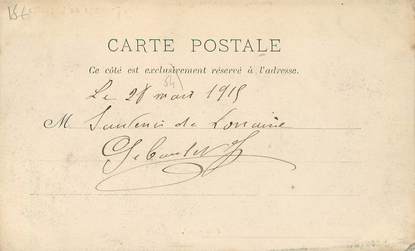 CARTE POSTALE
Ce côté est exclusivement réservé à l'adresse.
Le 28 mars 1915
M Souvenir de Lorraine